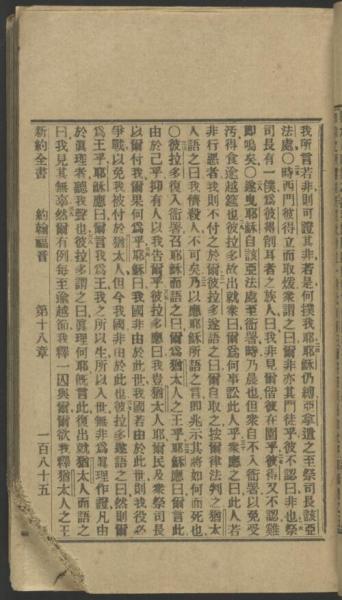 我所言若非則可證其非若是何撲我耶耶穌仍縛亞拿遣之至祭司長該亞
法處〇時西門彼得立而取煖衆謂之曰爾非亦其門徒乎彼不認曰非也祭
司長有一僕爲彼得削耳者之族人曰我非見爾偕彼在園乎彼得又不認雞
卽鳴矣〇遂曳耶穌自該亞法處至衙署時乃晨也但衆自不入衙署以免受
汚得食逾越筵也彼拉多故出就衆曰爾爲何事訟此人乎衆應之曰此人若
非行惡者我則不付之於爾彼拉多遂語之曰爾自取之按爾律法判之猶太
人語之曰我儕殺人不可矣乃以應耶穌所語之言卽兆示其將如何而死也
〇彼拉多復入衙署召耶穌而語之曰爾爲猶太人之王乎耶穌應曰爾言此
由於己乎抑有人以我告爾乎彼拉多應曰我豈猶太人耶爾民及衆祭司長
以爾付我爾果何爲乎耶穌曰我國非由於此世我國若由於此世則我役必
爭戰以免我被付於猶太人但今我國非由於此也彼拉多遂語之曰然則爾
爲王乎耶穌應曰爾言我爲王我之所以生所以入世無非爲眞理作證凡由
於眞理者聽我聲也彼拉多謂之曰眞理何耶旣言此復出就猶太人而語之
曰我見其無辜然爾有例每至逾越節我釋一囚與爾爾欲我釋猶太人之王
新約全書 約翰福音 第十八章 一百八十五